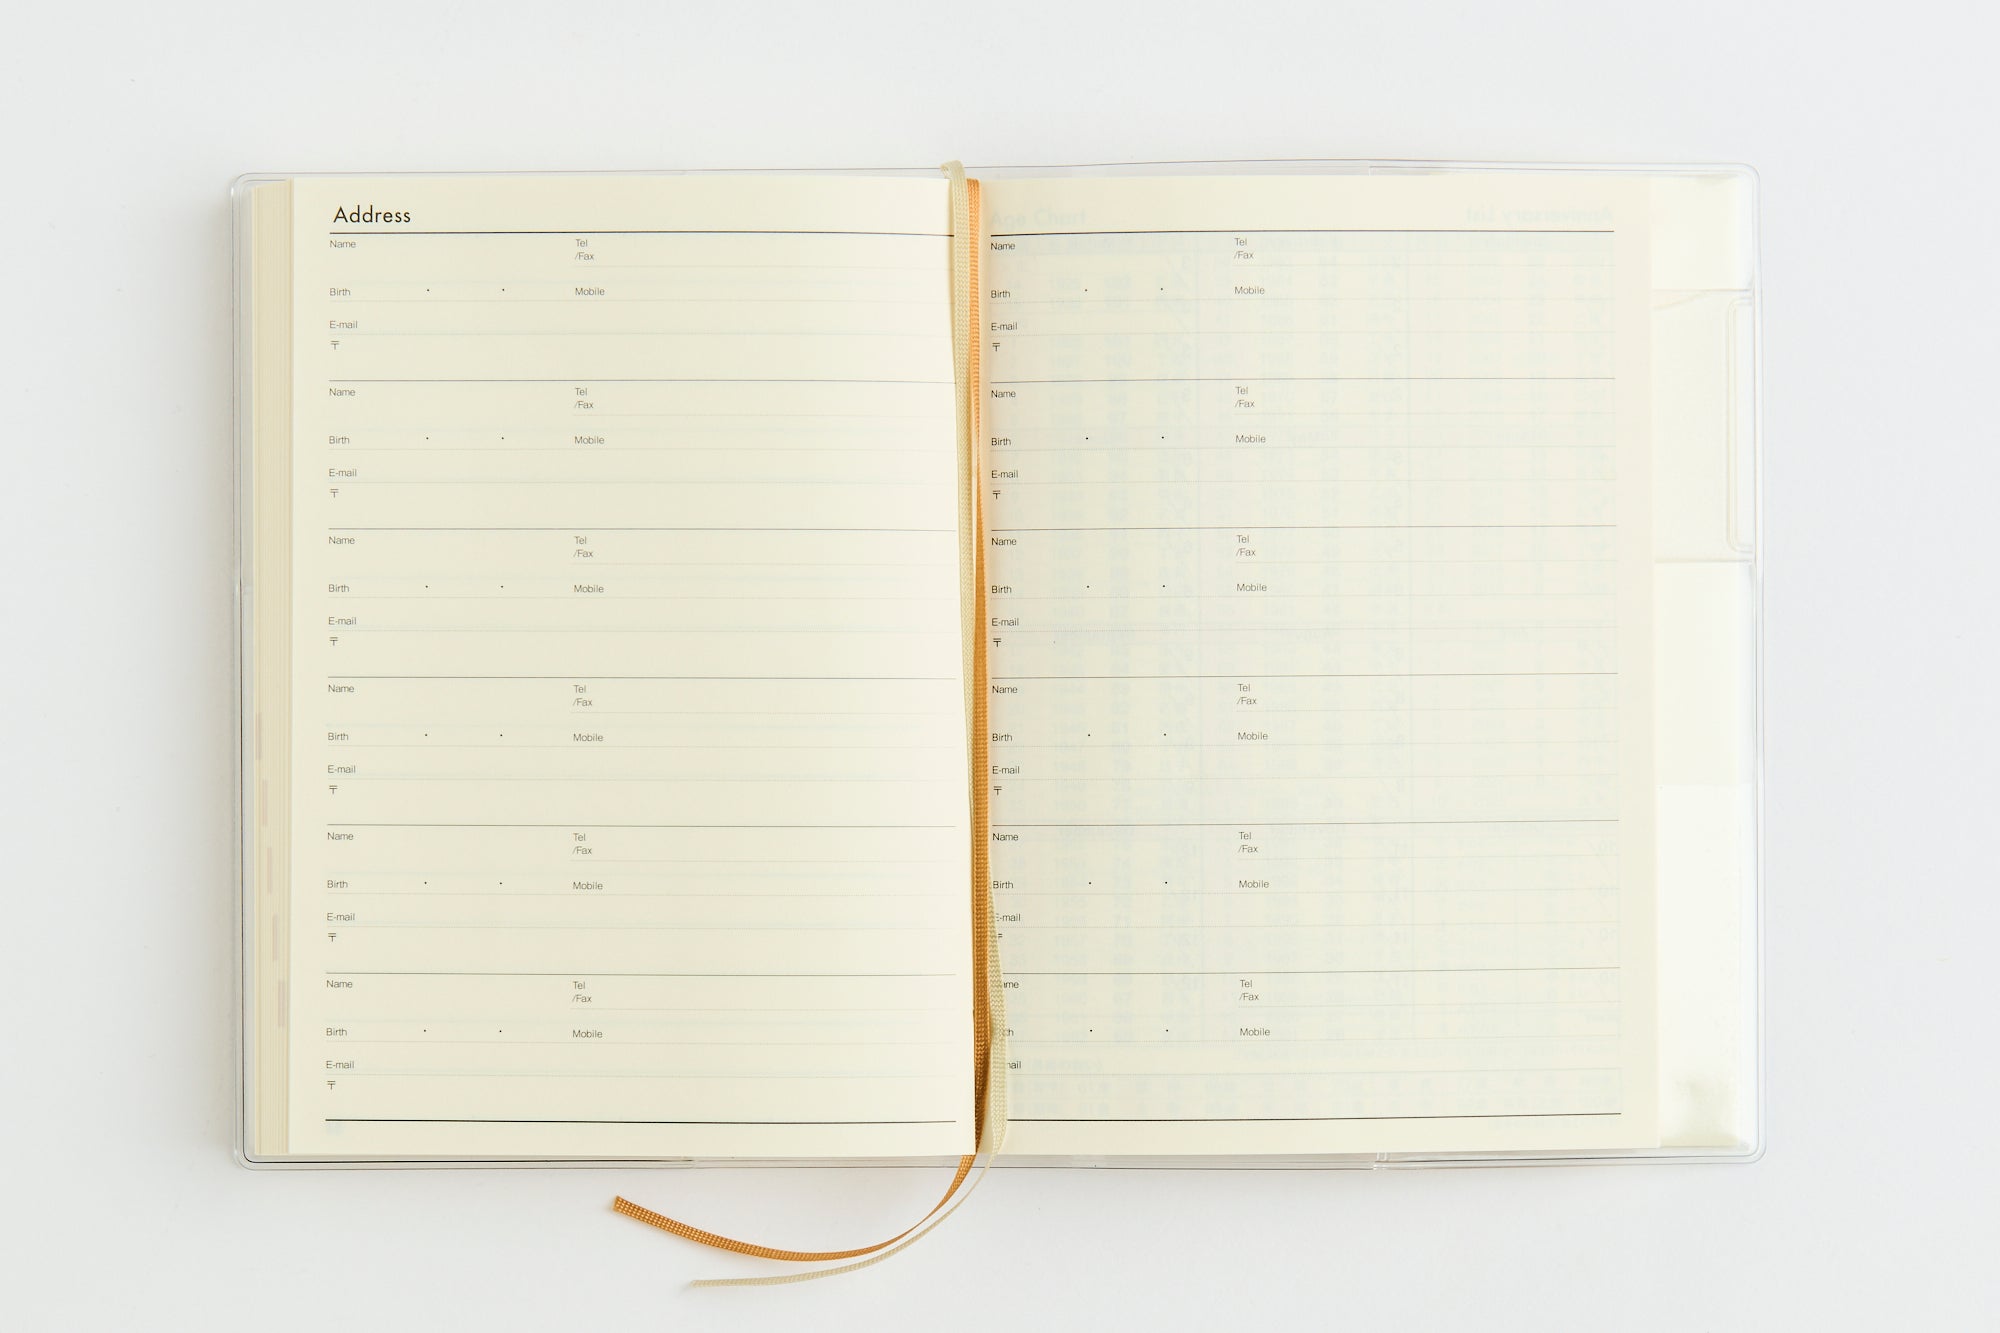 Address
Name Tel
/Fax
Birth · · Mobile
E-mail
〒
Name Tel
/Fax
Birth · · Mobile
E-mail
〒
Name Tel
/Fax
Birth · · Mobile
E-mail
〒
Name Tel
/Fax
Birth · · Mobile
E-mail
〒
Name Tel
/Fax
Birth · · Mobile
E-mail
〒
Name Tel
/Fax
Birth · · Mobile
E-mail
〒
Name Tel
/Fax
Birth · · Mobile
E-mail
〒
Name Tel
/Fax
Birth · · Mobile
E-mail
〒
Name Tel
/Fax
Birth · · Mobile
E-mail
〒
Name Tel
/Fax
Birth · · Mobile
E-mail
〒
Name Tel
/Fax
Birth · · Mobile
E-mail
Tel
/Fax
· · Mobile